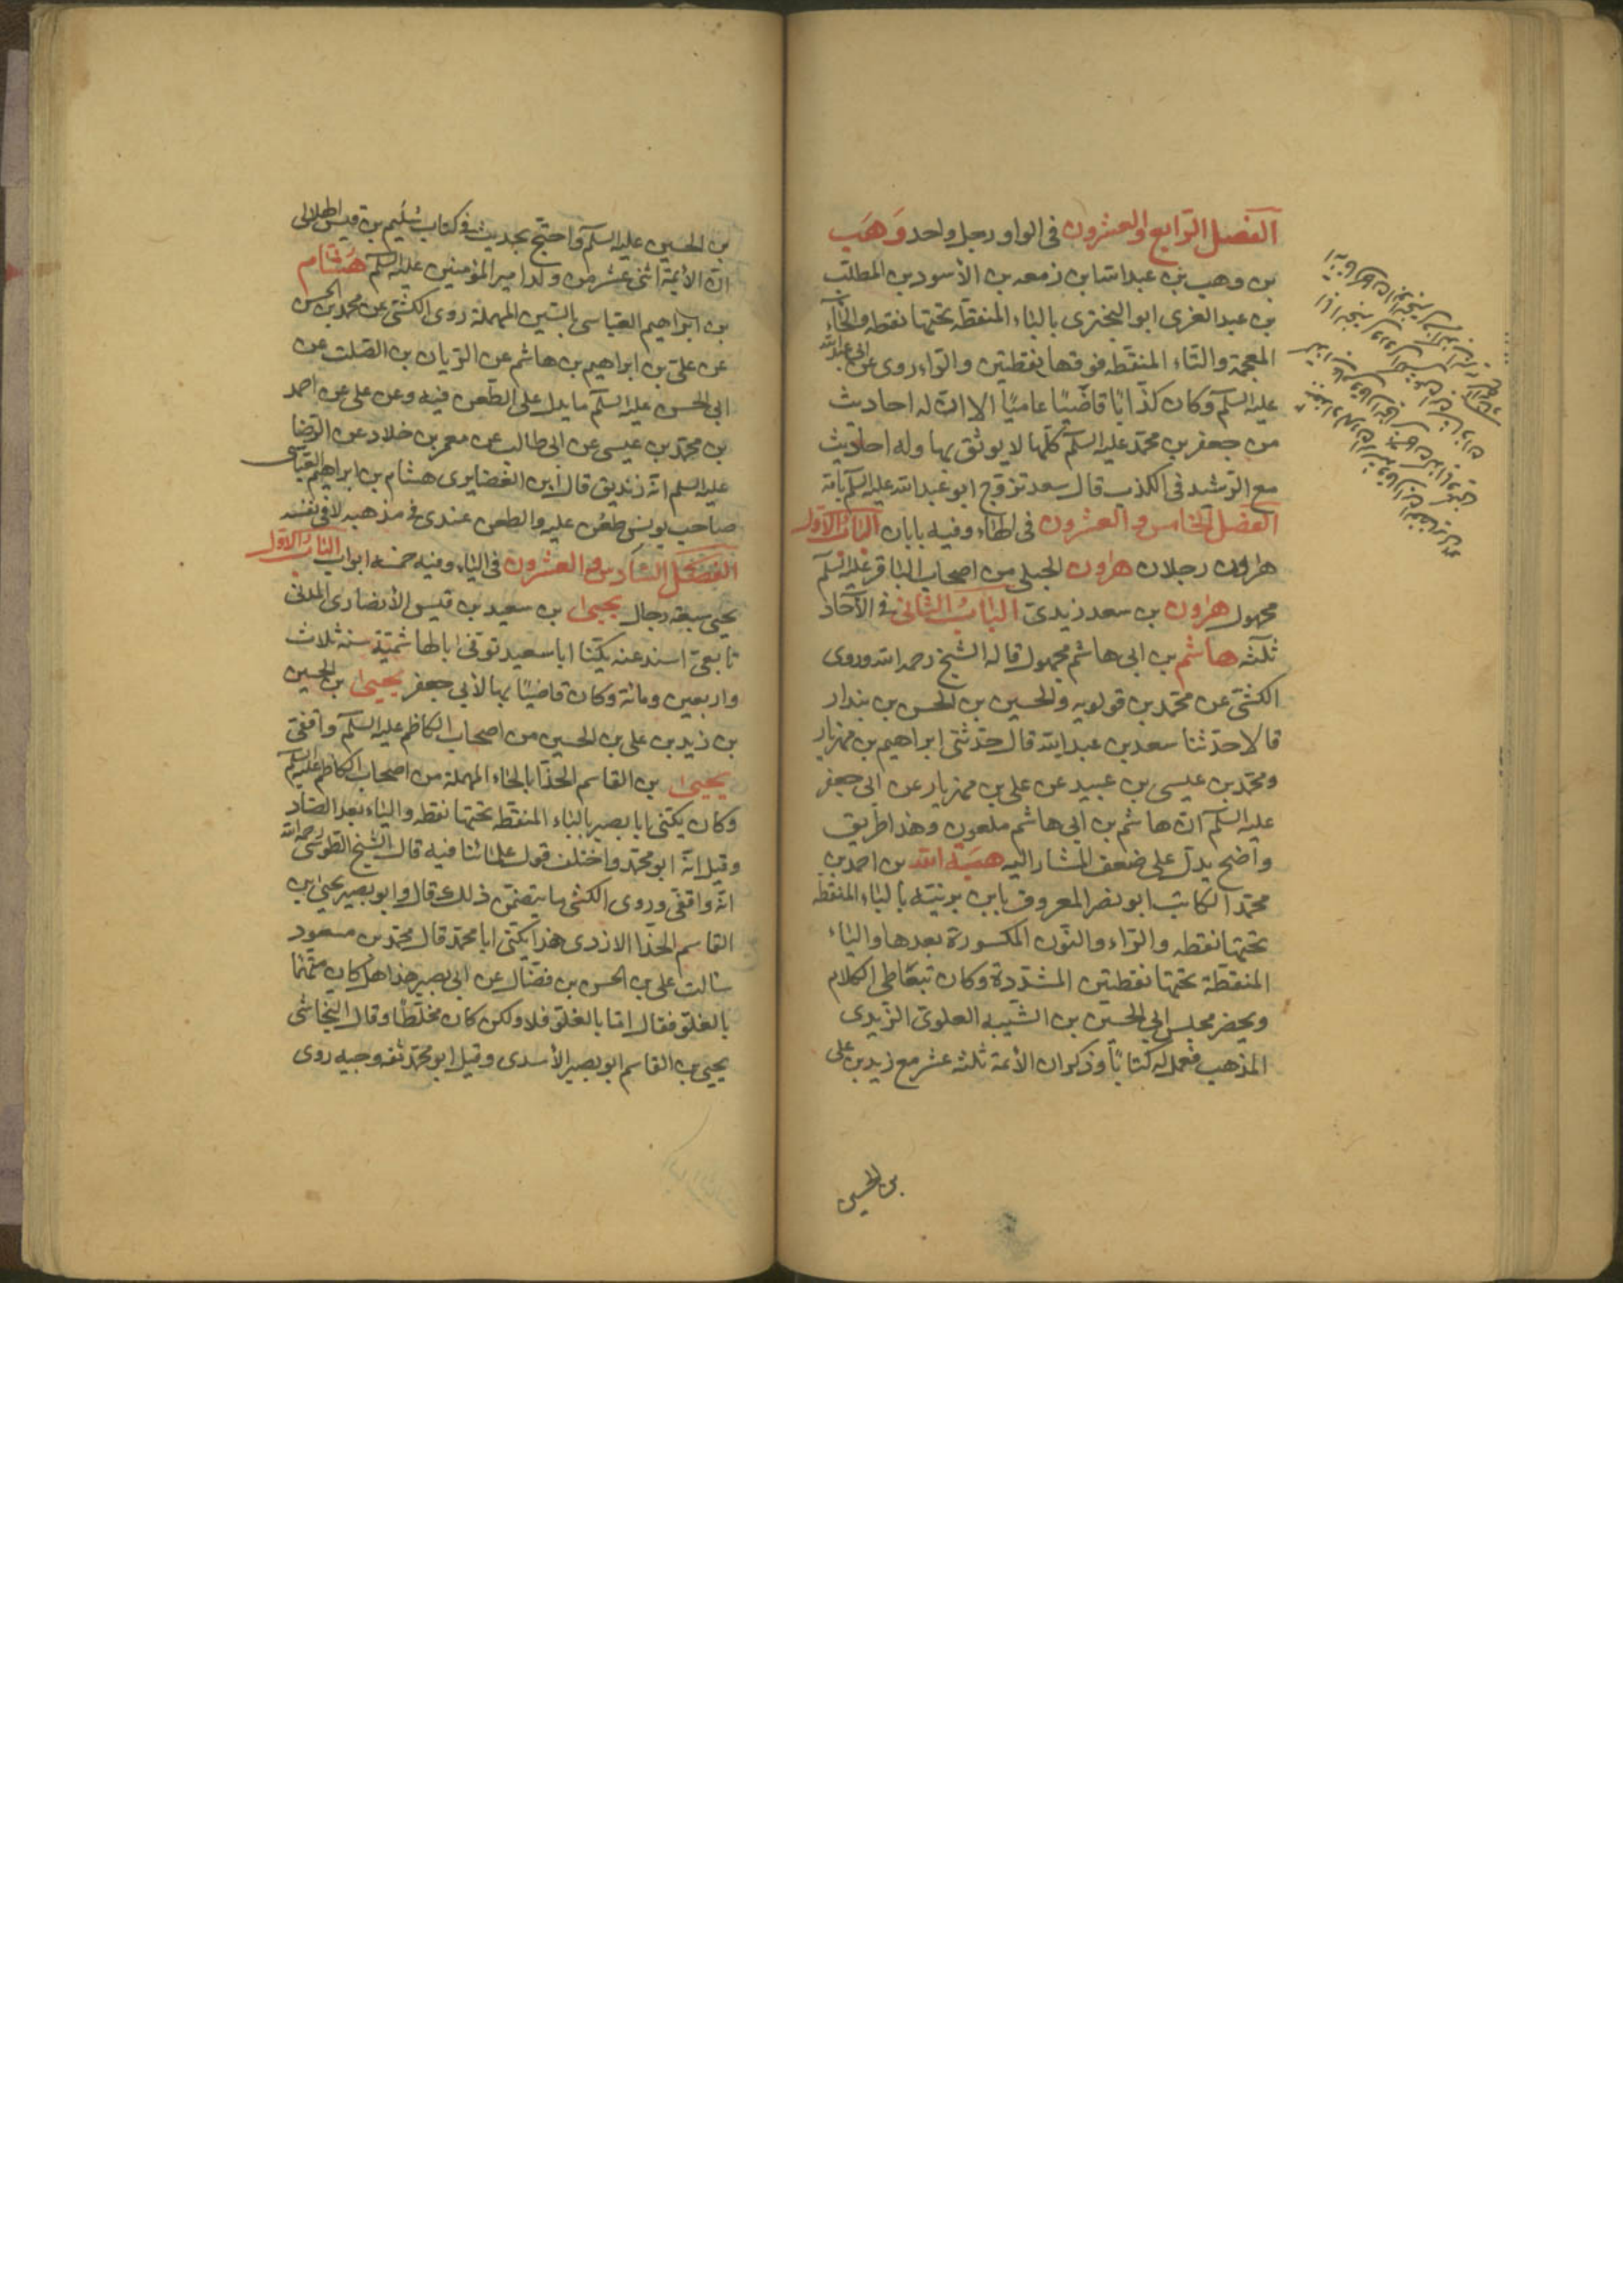 الفصل الرابع والعشرون في الواو رجل واحد وَهَب
بن وهب بن عبد الله ابن زمعه بن الأسود بن المطلب
بن عبد العزى ابو البخترى بالباء المنقطه تحتها نقطه والخاء
المعجمة والتاء المنقطه فوقها نقطتين والراء روى عن ابي عبد الله
عليه السلم وكان كذّابًا قاضيًا عاميًا الا ان له احاديث
من جعفر بن محمد عليه السلم كلّها لا يوثق بها وله احاديث
مع الرشيد في الكذب قال سعد تزوج ابو عبد الله عليه السلم بامّه
الفصل الخامس والعشرون في الهاء وفيه بابان الباب الأول
هرون رجلان هرون الجبلى من اصحاب الباقر عليه السلم
مجهول هرون بن سعد زيدى الباب الثاني في الآحاد
ثلثه هاشم بن ابى هاشم مجهول قاله الشيخ رحمه الله وروى
الكشى عن محمد بن قولويه والحسين بن الحسن بن بندار
قالا حدثنا سعد بن عبد الله قال حدثنى ابراهيم بن مهزيار
ومحمد بن عيسى بن عبيد عن على بن مهزيار عن ابى جعفر
عليه السلم ان هاشم بن ابى هاشم ملعون وهذا طريق
واضح يدل على ضعف المشار اليه هبة الله بن احمد بن
محمد الكاتب ابو نصر المعروف بابن برنيّه بالباء المنقطه
تحتها نقطه والراء والنون المكسورة بعدها والياء
المنقطة تحتها نقطتين المشددة وكان يتعاطى الكلام
ويحضر مجلس ابى الحسين بن الشيبه العلوى الزيدى
المذهب فعمل له كتابًا وذكر ان الأئمة ثلثه عشر مع زيد بن على
بن الحسين
بن الحسين عليه السلم واحتج بحديث في كتاب سُلَيم بن قيس الهلالى
ان الأئمة اثنى عشر من ولد امير المؤمنين عليه السلم هشام
بن ابراهيم العباسى بالسين المهملة روى الكشى عن محمد بن الحسن
عن على بن ابراهيم بن هاشم عن الريان بن الصلت عن
ابى الحسن عليه السلم ما يدل على الطعن فيه وعن على عن احمد
بن محمد بن عيسى عن ابى طالب عن معمر بن خلاد عن الرضا
عليه السلم انه زنديق قال ابن الغضايرى هشام بن ابراهيم العباسى
صاحب يونس طُعن عليه والطعن عندى في مذهبه لا في نفسه
الفصل السادس والعشرون في الياء وفيه خمسه ابواب الباب الأول
يحيى سبعه رجال يحيى بن سعيد بن قيس الأنصارى المدنى
تابعى اسند عنه يكنا ابا سعيد توفى بالهاشميّة سنه ثلاث
واربعين ومائة وكان قاضيًا بها لأبي جعفر يحيى بن الحسين
بن زيد بن على بن الحسين من اصحاب الكاظم عليه السلم واقفى
يحيى بن القاسم الحذّا بالحاء المهملة من اصحاب الكاظم عليه السلم
وكان يكنى بابا بصير بالباء المنقطه تحتها نقطه والياء بعد الصاد
وقيل انه ابو محمد واختلف قول علمائنا فيه قال الشيخ الطوسى رحمه الله
انه واقفى وروى الكشى ما يتضمن ذلك قال وابو بصير يحيى بن
القاسم الحذّا الازدى هذا يكنى ابا محمد قال محمد بن مسعود
سالت على بن الحسن بن فضّال عن ابى بصير هذا هل كان متّهمًا
بالغلو فقال امّا بالغلو فلا ولكن كان مخلّطًا وقال النجاشى
يحيى بن القاسم ابو بصير الأسدى وقيل ابو محمد ثقه وجيه روى